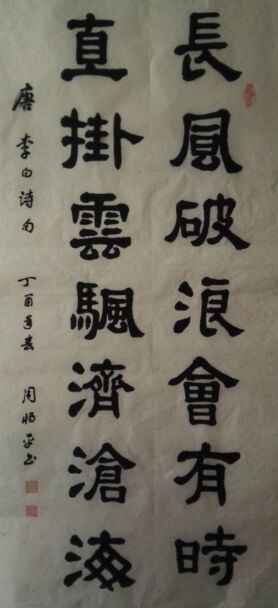 長風破浪會有時
直掛雲颿濟滄海
唐 李白诗句 丁酉年春 周